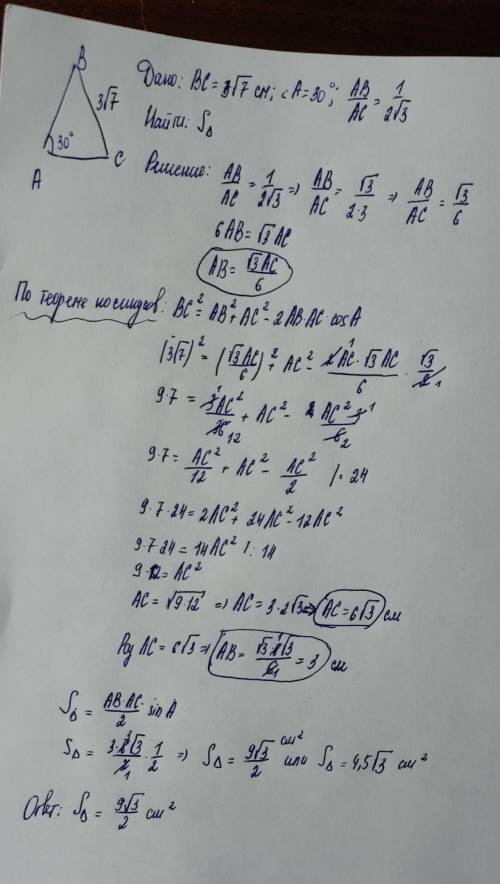 B
3√7
30°
A
C
Дано: BC = 3√7 см; <A = 30°; AB/AC = 1/2√3
Найти: S△
Решение: AB/AC = 1/2√3 => AB/AC = √3/2·3 => AB/AC = √3/6
6AB = √3 AC
AB = √3AC/6
По теореме косинусов: BC² = AB² + AC² - 2AB·AC·cosA
(3√7)² = (√3AC/6)² + AC² - 2AC·√3AC/6 · √3/2
9·7 = 3AC²/36 + AC² - AC²·3/6
9·7 = AC²/12 + AC² - AC²/2 /·24
9·7·24 = 2AC² + 24AC² - 12AC²
9·7·24 = 14AC² /:14
9·12 = AC²
AC = √9·12 => AC = 3·2√3 => AC = 6√3 см
Раз AC = 6√3 => AB = √3·6√3/6 = 3 см
S△ = AB·AC/2 · sinA
S△ = 3·6√3/2 · 1/2 => S△ = 9√3/2 см² или S△ = 4,5√3 см²
Ответ: S△ = 9√3/2 см²